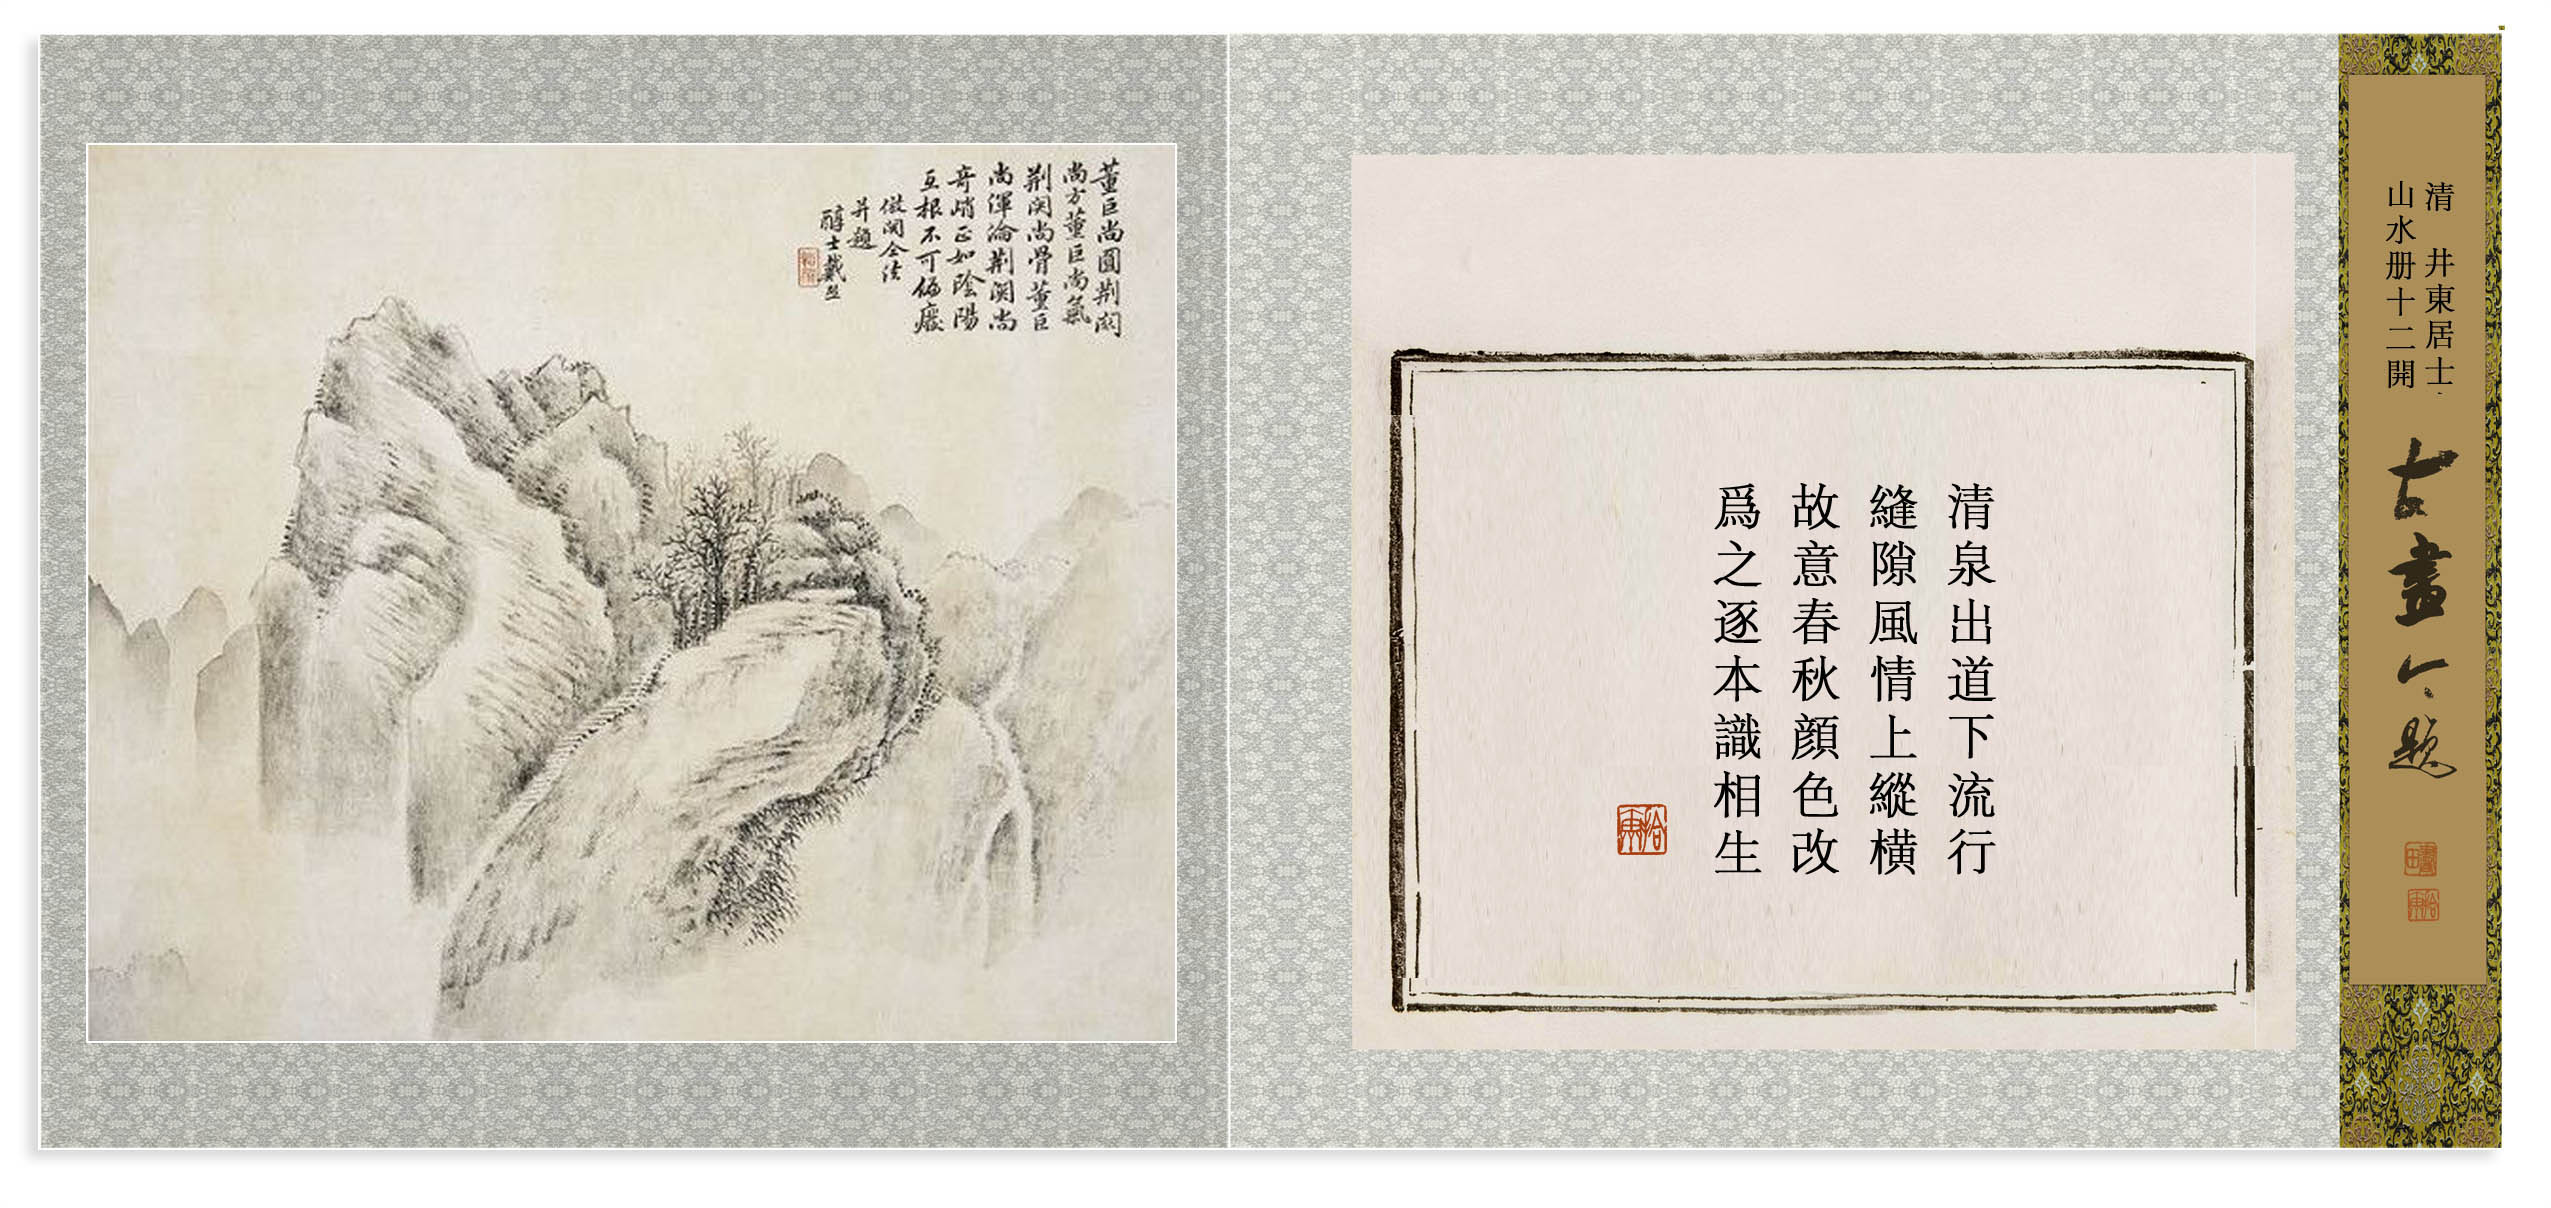 清 井東居士
山水册十二開
古畫今題
清泉出道下流行
縫隙風情上縱橫
故意春秋顔色改
爲之逐本識相生
董巨尚圓荆関
尚方董巨尚氣
荆関尚骨董巨
尚渾淪荆関尚
奇峭正如陰陽
互根不可偏廢
倣関仝法
并題
醇士戴熙